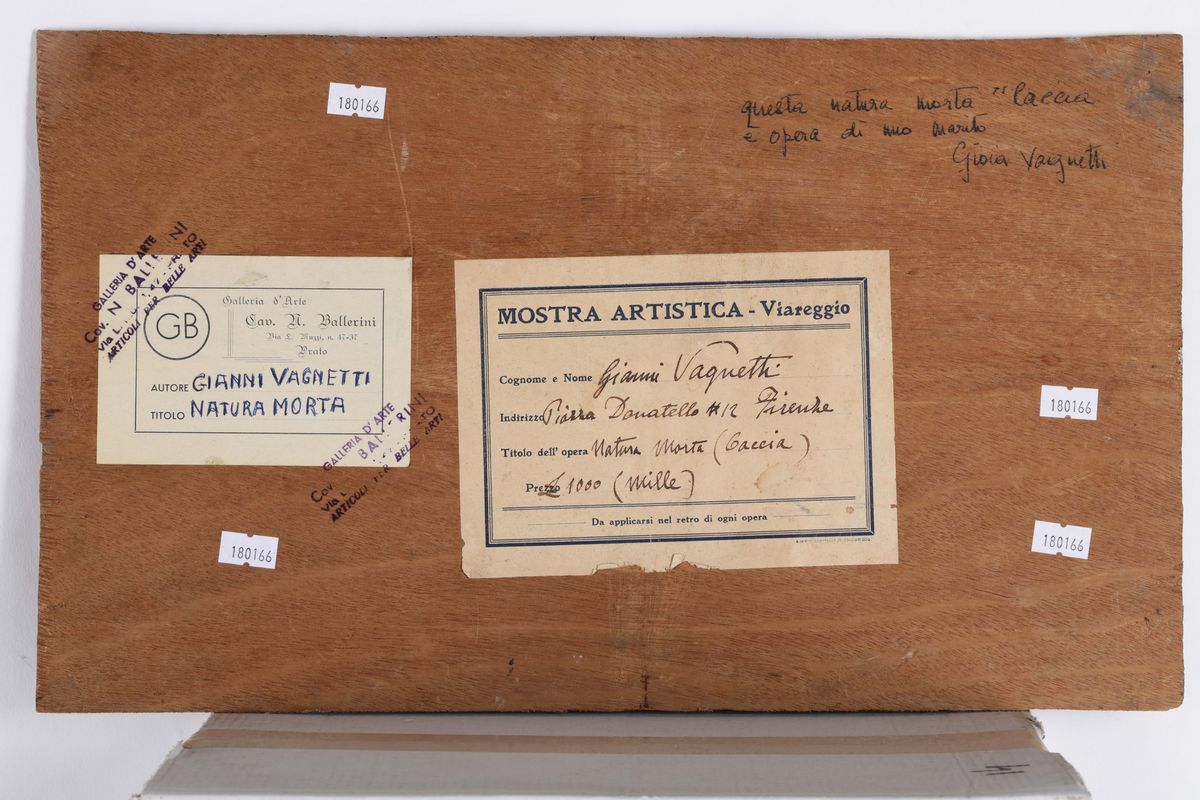 180166
questa natura morta "Caccia
è opera di mio marito
Gioia Vagnetti
GALLERIA D'ARTE
Cov. N BALL RINI
Via L.
ARTICOLI PER BELLE ARTI
GB
Galleria d'Arte
Cav. N. Ballerini
Via L. Muzzi, n. 47-37
Prato
AUTORE GIANNI VAGNETTI
TITOLO NATURA MORTA
GALLERIA D'ARTE
Cov. BAL RINI
Via L
ARTICOLI PER BELLE ARTI
MOSTRA ARTISTICA - Viareggio
Cognome e Nome Gianni Vagnetti
Indirizzo Piazza Donatello #12 Firenze
Titolo dell' opera Natura Morta (Caccia)
Prezzo £ 1000 (Mille)
Da applicarsi nel retro di ogni opera
180166
180166
180166